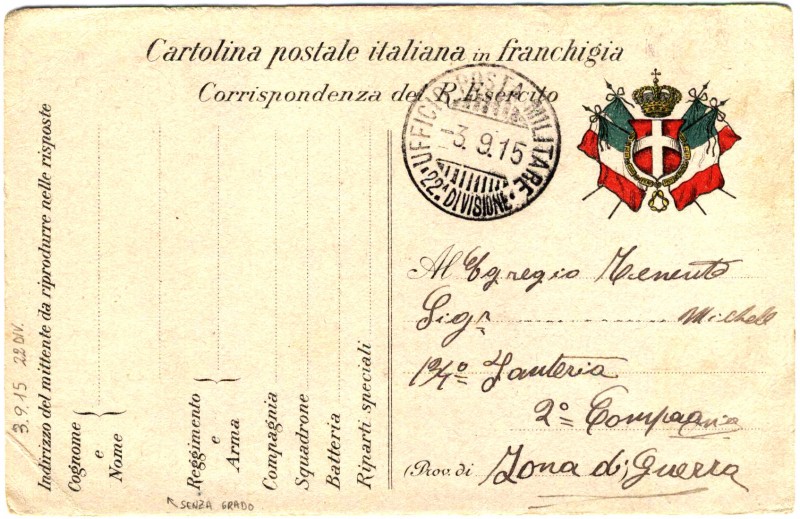 Cartolina postale italiana in franchigia
Corrispondenza del R. Esercito
UFFICIO POSTA MILITARE
3.9.15
22ª DIVISIONE
Al Egregio Tenente
Sigr Michele
124º Fanteria
2ª Compagnia
(Prov. di Zona di Guerra
3.9.15 22 DIV.
Indirizzo del mittente da riprodurre nelle risposte
Cognome
e
Nome
Reggimento
e
Arma
Compagnia
Squadrone
Batteria
Riparti speciali
SENZA GRADO